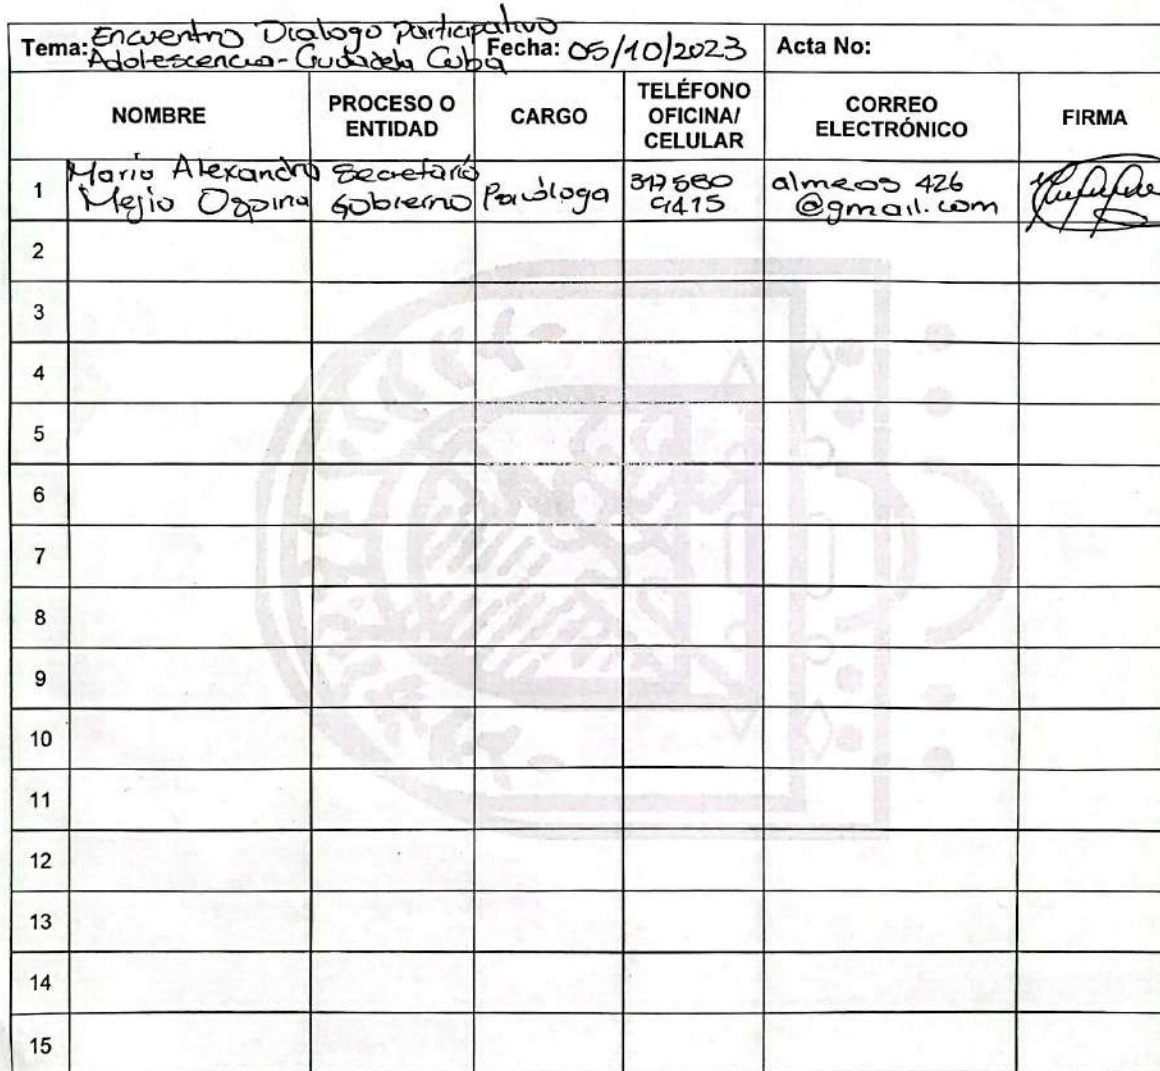 Tema: Encuentro Dialogo Participativo
Adolescencia - Ciudadela Cuba
Fecha: 05/10/2023
Acta No:
NOMBRE
PROCESO O
ENTIDAD
CARGO
TELÉFONO
OFICINA/
CELULAR
CORREO
ELECTRÓNICO
FIRMA
1
Maria Alexandra
Mejia Ospina
Secretaría
Gobierno
Psicóloga
317 560
9415
almeos 426
@gmail.com
2
3
4
5
6
7
8
9
10
11
12
13
14
15